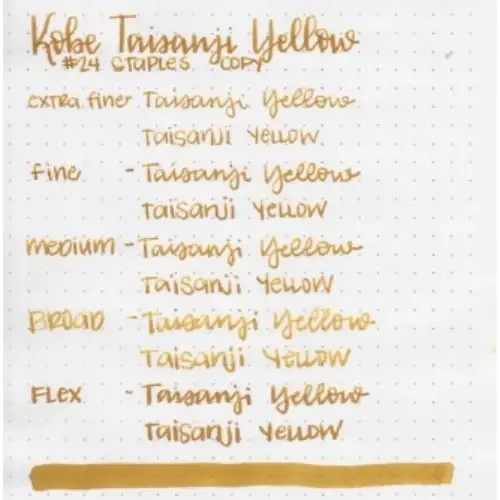 Kobe Taisanji Yellow
#24 STAPLES COPY
extra fine- Taisanji Yellow
TAISANJI YELLOW
Fine - Taisanji Yellow
TAISANJI YELLOW
medium - Taisanji Yellow
TAISANJI YELLOW
BROAD - Taisanji Yellow
TAISANJI YELLOW
FLEX - Taisanji Yellow
TAISANJI YELLOW